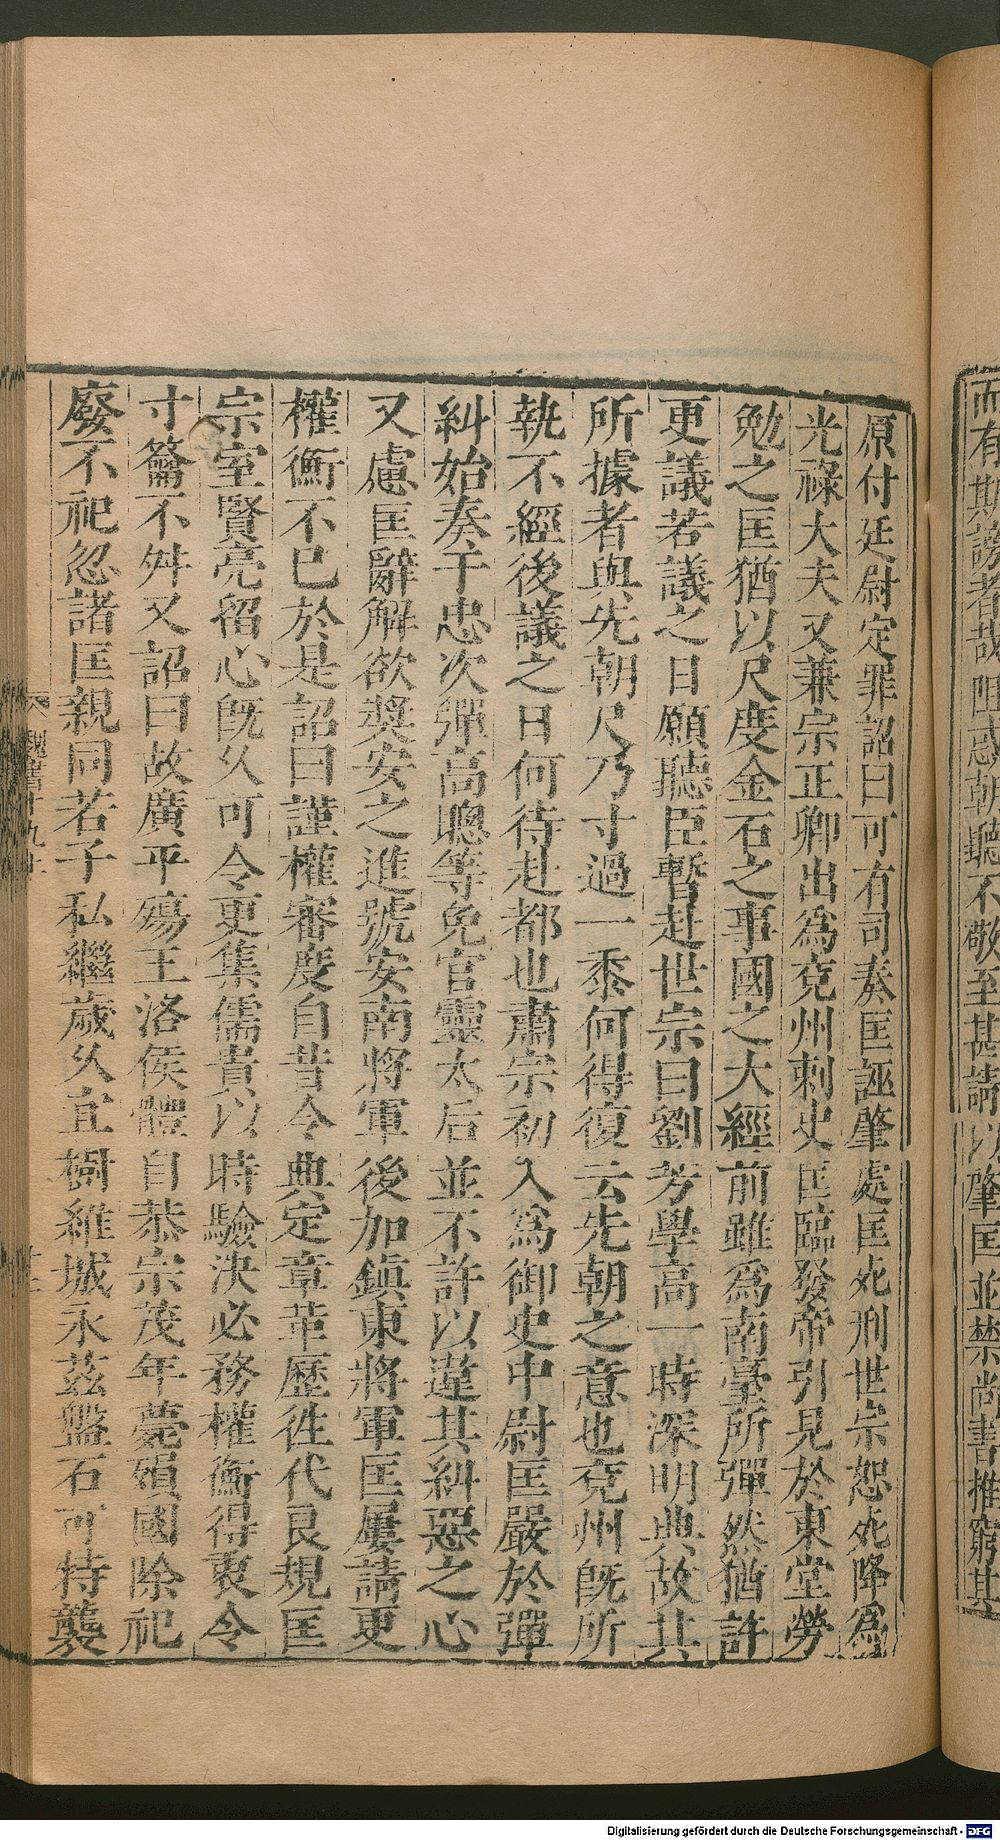 而有斯謗者哉阻惑朝聽不敬至甚請以肇匡並禁尚書推窮其
原付廷尉定罪詔曰可有司奏匡誣肇處匡死刑世宗恕死降爲
光祿大夫又兼宗正卿出爲兗州刺史匡臨發帝引見於東堂勞
勉之匡猶以尺度金石之事國之大經前雖爲南臺所彈然猶許
更議若議之日願聽臣暫赴世宗曰劉芳學高一時深明典故其
所據者與先朝尺乃寸過一黍何得復云先朝之意也兗州旣所
執不經後議之日何待赴都也肅宗初入爲御史中尉匡嚴於彈
糾始奏于忠次彈高聰等免官靈太后並不許以違其糾惡之心
又慮匡辭解欲奬安之進號安南將軍後加鎭東將軍匡屢請更
權衡不已於是詔曰謹權審度自昔令典定章革歷徃代良規匡
宗室賢亮留心旣久可令更集儒貴以時驗決必務權衡得衷令
寸籥不舛又詔曰故廣平殤王洛侯體自恭宗茂年薨殞國除祀
廢不祀忽諸匡親同若子私繼歲久宜樹維城永茲盤石可特襲
魏書十九上
Digitalisierung gefördert durch die Deutsche Forschungsgemeinschaft - DFG